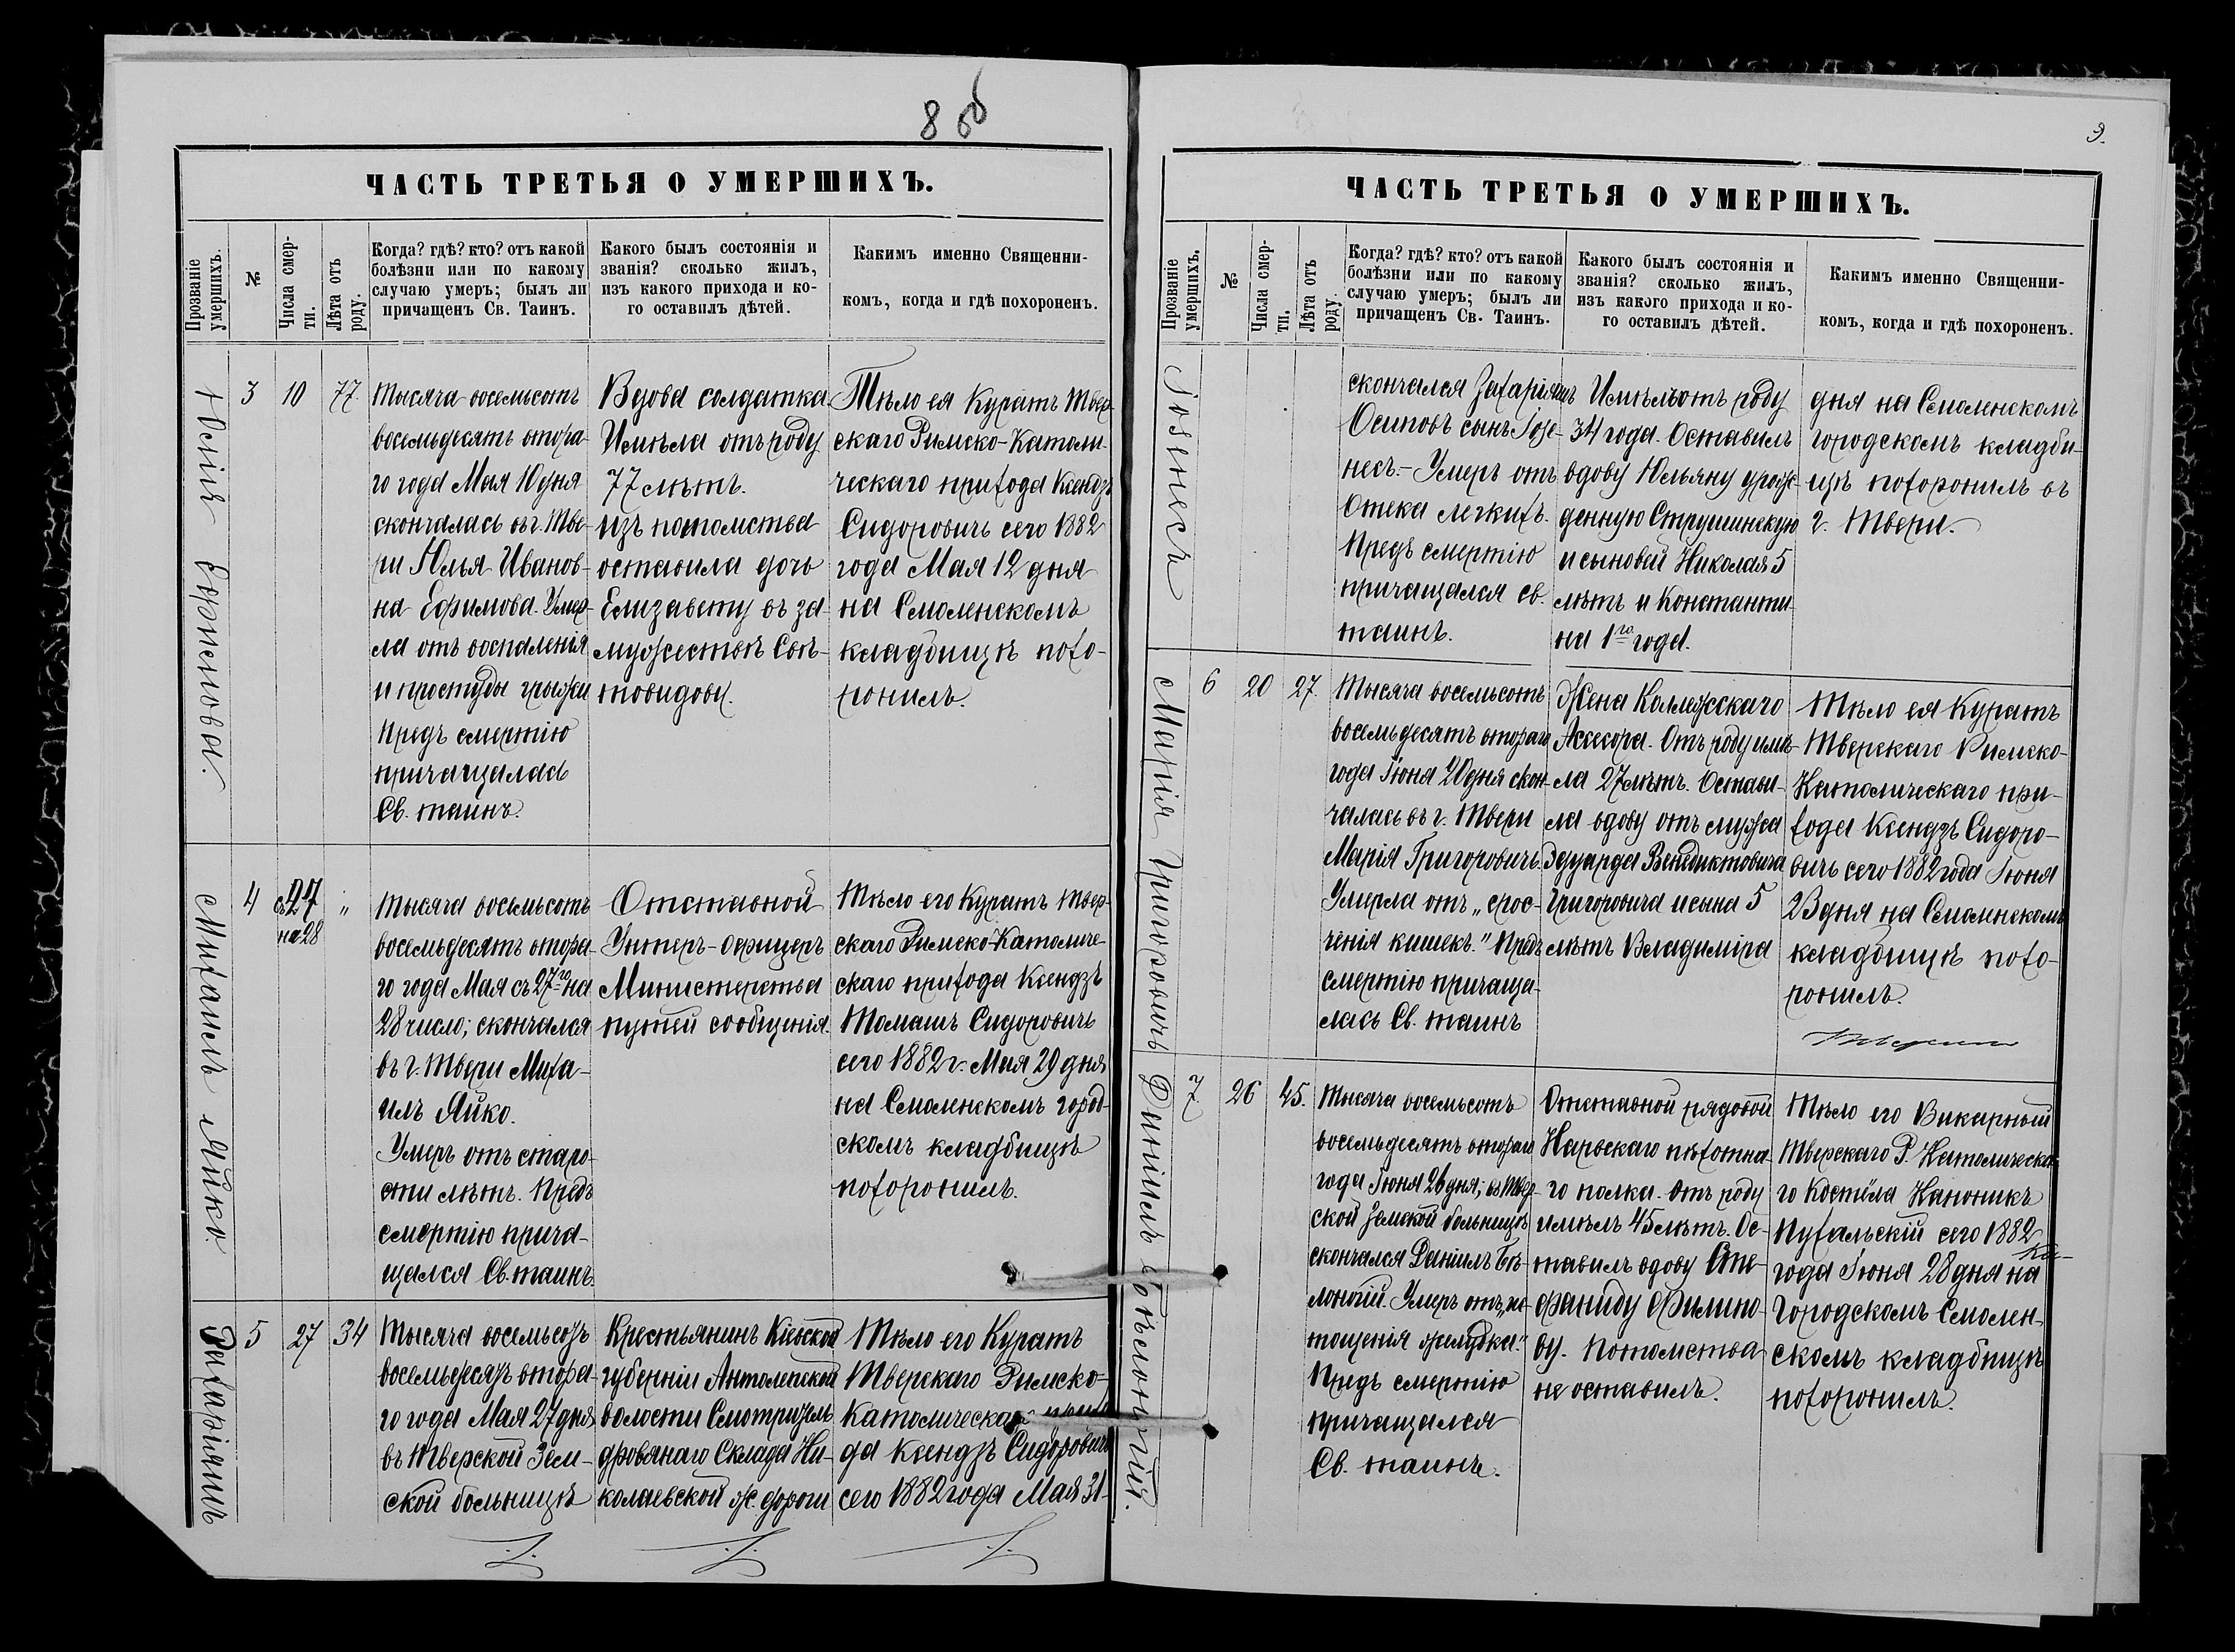 8 об
ЧАСТЬ ТРЕТЬЯ О УМЕРШИХЪ.
Прозваніе умершихъ.
№
Числа смер-
ти.
Лѣта отъ
роду.
Когда? гдѣ? кто? отъ какой
болѣзни или по какому
случаю умеръ; былъ ли
причащенъ Св. Таинъ.
Какого былъ состоянія и
званія? сколько жилъ,
изъ какого прихода и ко-
го оставилъ дѣтей.
Какимъ именно Священни-
комъ, когда и гдѣ похороненъ.
Юлія Ефимова.
3
10
77.
Тысяча восемьсотъ
восемьдесятъ втора-
го года Мая 10 дня
скончалась въ г. Тве-
ри Юлья Иванов-
на Ефимова. Умер-
ла отъ воспаленія
и простуды грыжи
Предъ смертію
причащалась
Св. таинъ.
Вдова солдатка.
Имѣла отъ роду
77 лѣтъ.
Изъ потомства
оставила дочь
Елизавету въ за-
мужествѣ Свѣ-
товидову.
Тѣло ея Куратъ Твер-
скаго Римско-Католи-
ческаго прихода Ксендзъ
Сидоровичъ сего 1882
года Мая 12 дня
на Смоленскомъ
кладбищѣ похо-
ронилъ.
Михаилъ Яйко.
4
съ 27
на 28
"
Тысяча восемьсотъ
восемьдесятъ втора-
го года Мая съ 27го на
28 число; скончался
въ г. Твери Миха-
илъ Яйко.
Умеръ отъ старо-
сти лѣтъ. Предъ
смертію прича-
щался Св. таинъ.
Отставной
Унтеръ-офицеръ
Министерства
путей сообщенія.
Тѣло его Куратъ Твер-
скаго Римско-Католиче-
скаго прихода Ксендзъ
Томашъ Сидоровичъ
сего 1882 г. Мая 29 дня
на Смоленскомъ город-
скомъ кладбищѣ
похоронилъ.
Захаріяшъ
5
27
34
Тысяча восемьсотъ
восемьдесятъ втора-
го года Мая 27 дня
въ Тверской Зем-
ской больницѣ
Крестьянинъ Кіевской
губерніи Антолепской
волости Смотритель
дровянаго Склада Ни-
колаевской ж. дороги
Тѣло его Куратъ
Тверскаго Римско-
Католическаго прихо-
да ксендзъ Сидоровичъ
сего 1882 года Мая 31-
9.
ЧАСТЬ ТРЕТЬЯ О УМЕРШИХЪ.
Прозваніе умершихъ.
№
Числа смер-
ти.
Лѣта отъ
роду.
Когда? гдѣ? кто? отъ какой
болѣзни или по какому
случаю умеръ; былъ ли
причащенъ Св. Таинъ.
Какого былъ состоянія и
званія? сколько жилъ,
изъ какого прихода и ко-
го оставилъ дѣтей.
Какимъ именно Священни-
комъ, когда и гдѣ похороненъ.
скончался Захаріяшъ
Осиповъ сынъ Іозе-
несъ. - Умеръ отъ
Отека легкихъ.
Предъ смертію
причащался св.
таинъ.
Имѣлъ отъ роду
34 года. Оставилъ
вдову Юльяну урож-
денную Струшинскую
и сыновей Николая 5
лѣтъ и Константи-
на 1го года.
дня на Смоленскомъ
городскомъ кладби-
щѣ похоронилъ въ
г. Твери.
Марія Григоровичъ
6
20
27.
Тысяча восемьсотъ
восемьдесятъ втораго
года Іюня 20 дня скон-
чалась въ г. Твери
Марія Григоровичъ.
Умерла отъ „срос-
ченія кишекъ." Предъ
смертію причаща-
лась Св. таинъ
Жена Коллежскаго
Асессора. Отъ роду имѣ-
ла 27 лѣтъ. Остави-
ла вдову отъ мужа
Эдуарда Венедиктовича
Григоровича и сына 5
лѣтъ Владиміра
Тѣло ея Куратъ
Тверскаго Римско-
Католическаго при-
хода Ксендзъ Сидоро-
вичъ сего 1882 года Іюня
23 дня на Смоленскомъ
кладбищѣ похо-
ронилъ.
Даніилъ Бѣлоногій.
7
26
45.
Тысяча восемьсотъ
восемьдесятъ втораго
года Іюня 26 дня, въ Твер-
ской Земской больницѣ
скончался Даніилъ Бѣ-
лоногій. Умеръ отъ „ис-
тощенія желудка."
Предъ смертію
причащался
Св. таинъ.
Отставной рядовой
Нарвскаго пѣхотна-
го полка. Отъ роду
имѣлъ 45 лѣтъ. Ос-
тавилъ вдову Сте-
фаниду Филипо-
ву. Потомства
не оставилъ.
Тѣло его Викарный
Тверскаго Р. Католическа-
го Костёла Каноникъ
Пухальскій сего 1882
года Іюня 28 дня на
Городскомъ Смолен-
скомъ кладбищѣ
похоронилъ.